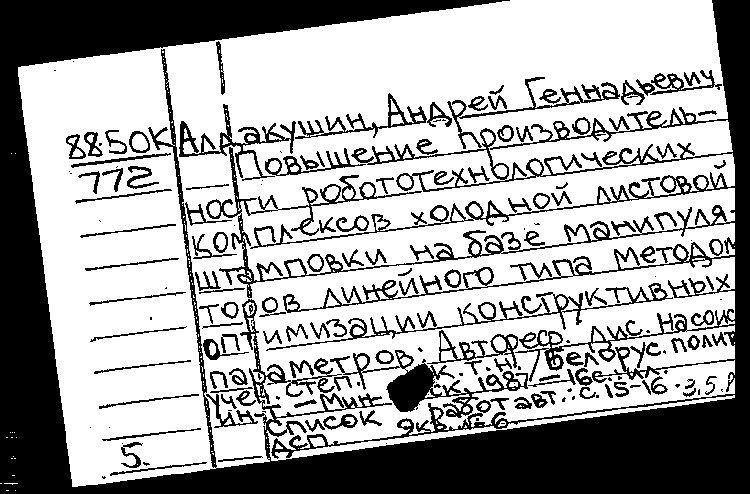 88.50К Алдакушин, Андрей Геннадьевич.
772 Повышение производитель-
ности робототехнологических
комплексов холодной листовой
штамповки на базе манипуля-
торов линейного типа методом
оптимизации конструктивных
параметров. Автореф. дис. на соис
учен. степ. к. т. н. / Белорус. полит
ин-т. — Мин ск. 1987 — 16 с. ил.
Список работ авт.: с. 15-16.
5. ДСП. Экв. № 6 3,5.